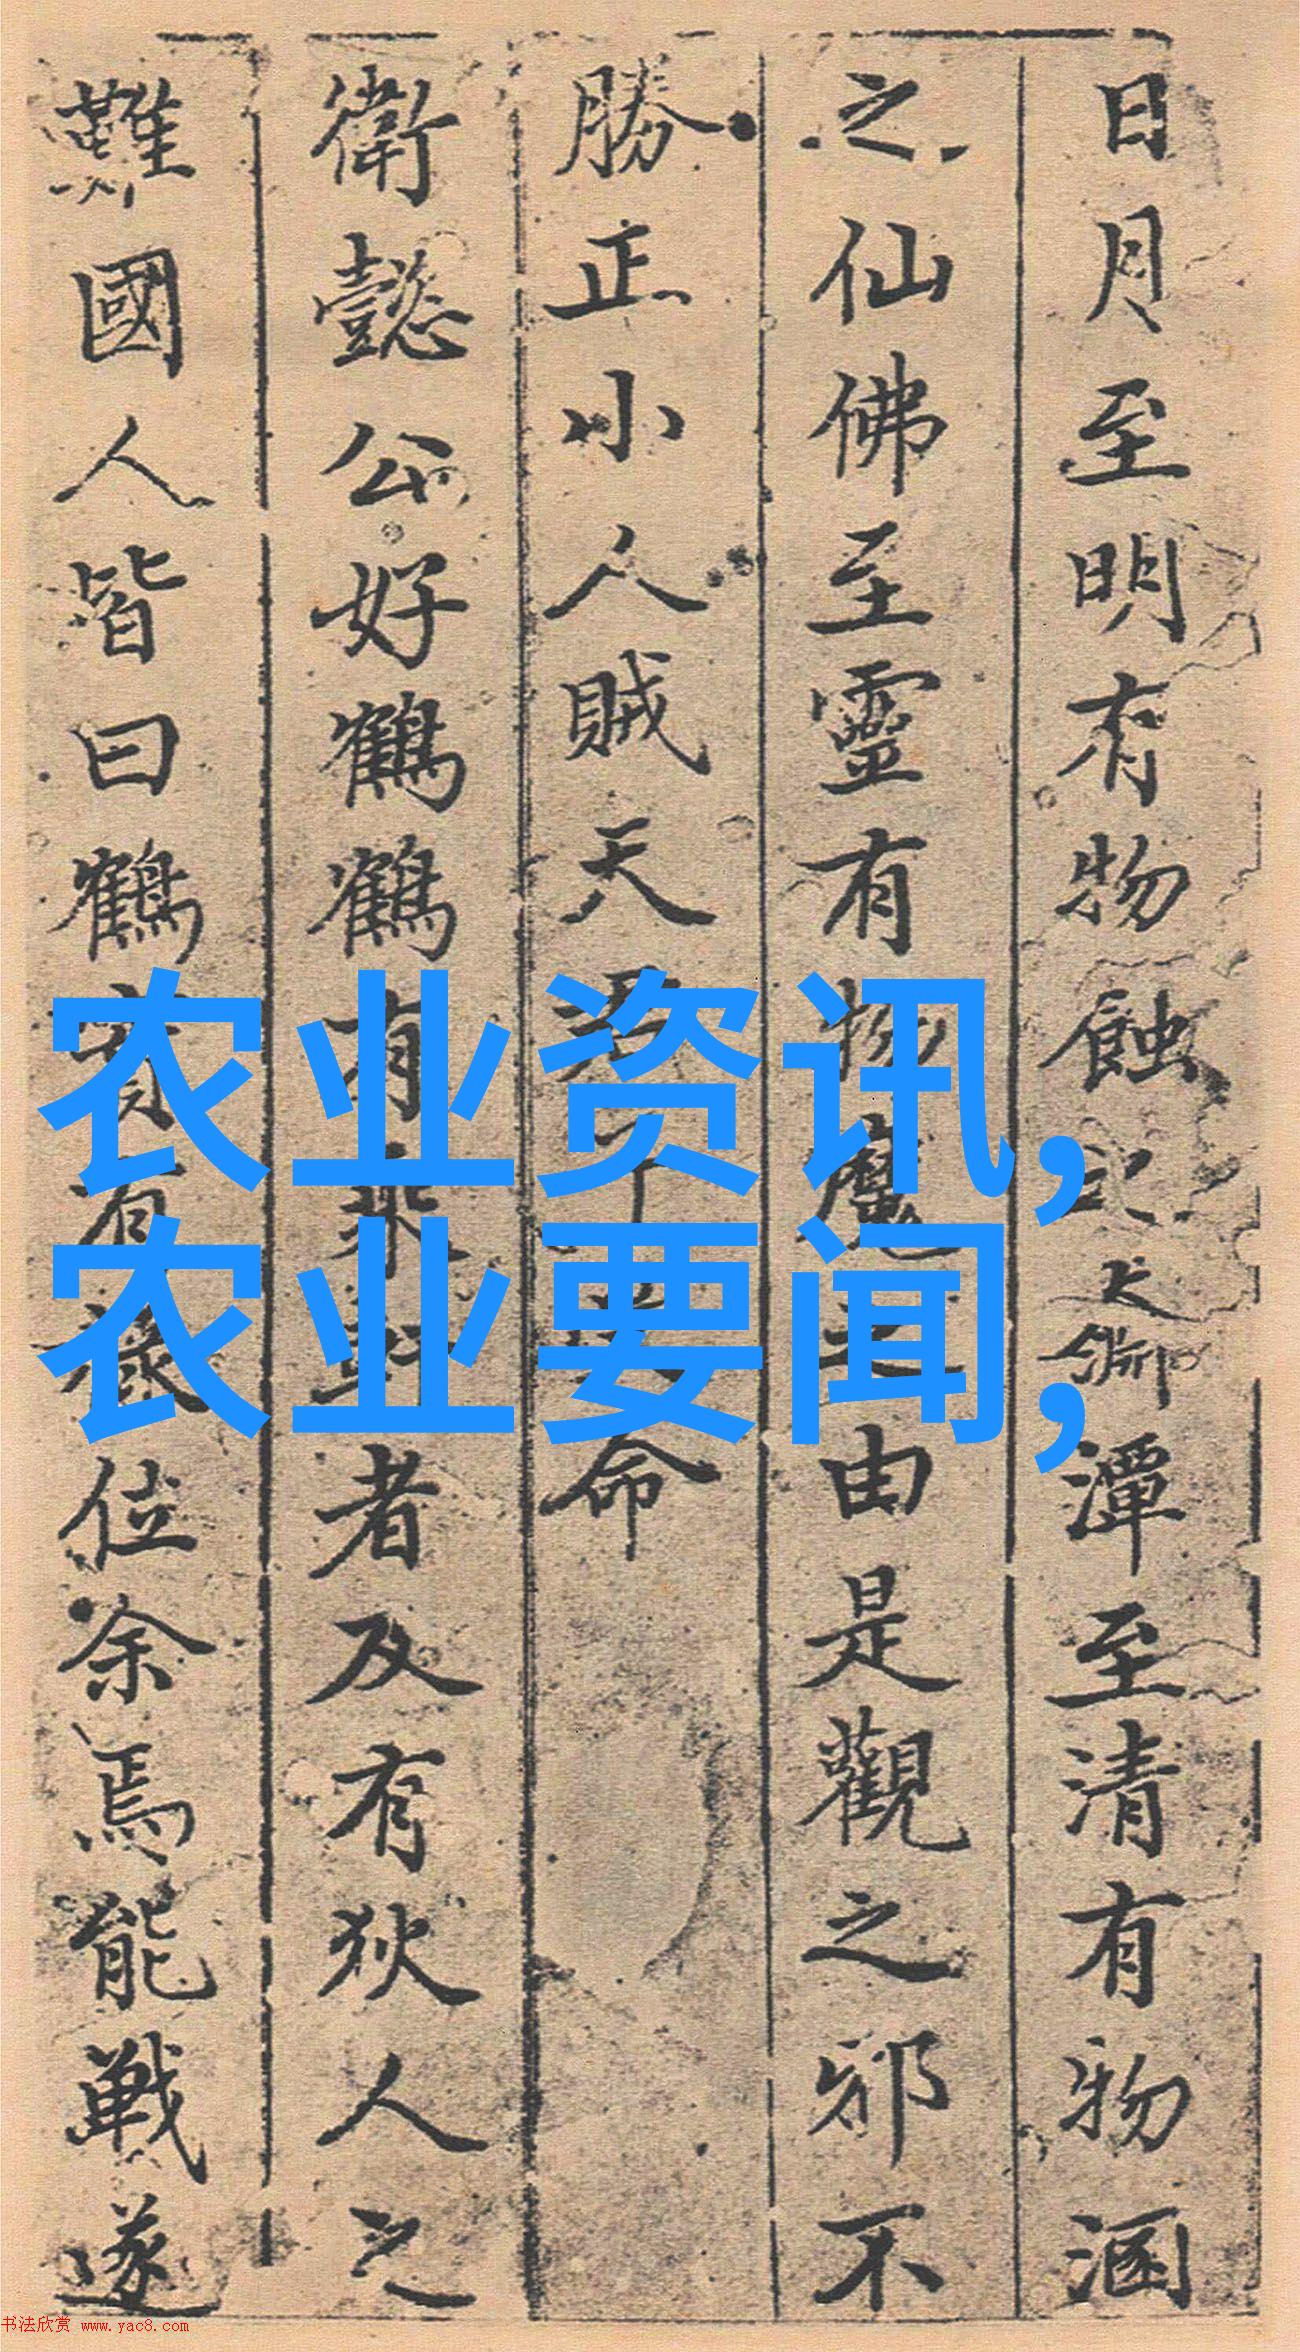 日月至明有物蝕之大淵潭至清有物涵
之仙佛至靈有物魔之由是觀之邪不
勝正小人賊天君子命
衛懿公好鶴鶴有乘軒者及有狄人之
難國人皆曰鶴實有祿位余焉能戰遂
农业资讯,
农业要闻,
书法欣赏 www.yac8.com